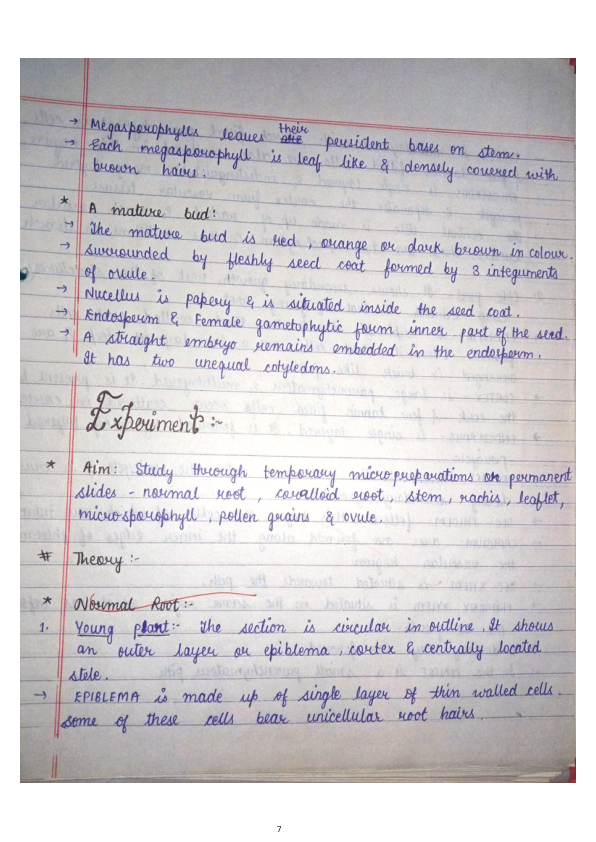 → Megasporophylls leaves their persistent bases on stem.
→ Each megasporophyll is leaf like & densely covered with
brown hairs.
* A mature bud:
→ The mature bud is red, orange or dark brown in colour.
→ surrounded by fleshly seed coat formed by 3 integuments
of ovule.
→ Nucellus is papery & is situated inside the seed coat.
→ Endosperm & Female gametophytic form inner part of the seed.
→ A straight embryo remains embedded in the endosperm.
It has two unequal cotyledons.
Experiment :-
* Aim: Study through temporary micropreparations or permanent
slides - normal root, coralloid root, stem, rachis, leaflet,
microsporophyll, pollen grains & ovule.
# Theory :-
* Normal Root :-
1. Young plant :- The section is circular in outline. It shows
an outer layer or epiblema, cortex & centrally located
stele.
→ EPIBLEMA is made up of single layer of thin walled cells.
some of these cells bear unicellular root hairs.
7